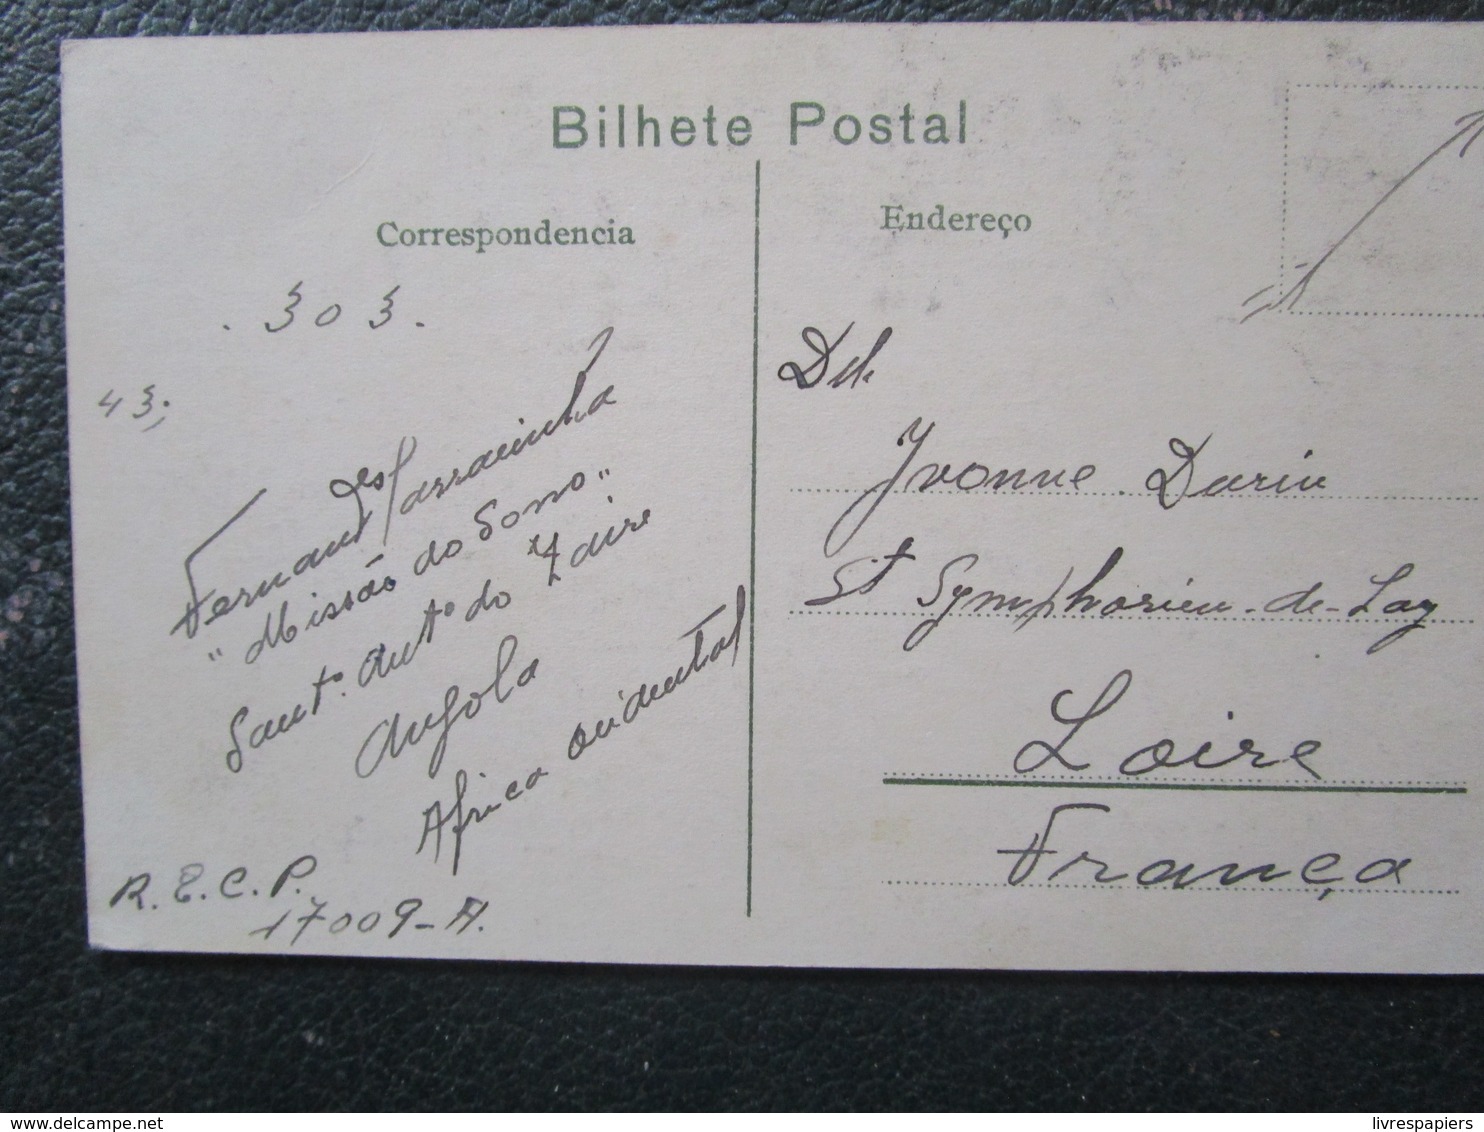 Bilhete Postal
Correspondencia
. 303.
43;
Fernandes Sarrainha
"Missão do Sono"
Santo. Anto. do Zaire
Angola
Africa Ocidental
R.E.C.P.
17009-A.
Endereço
Yvonne Darin
St Symphorien-de-Lay
Loire
França
delcampe.net
livrespapiers